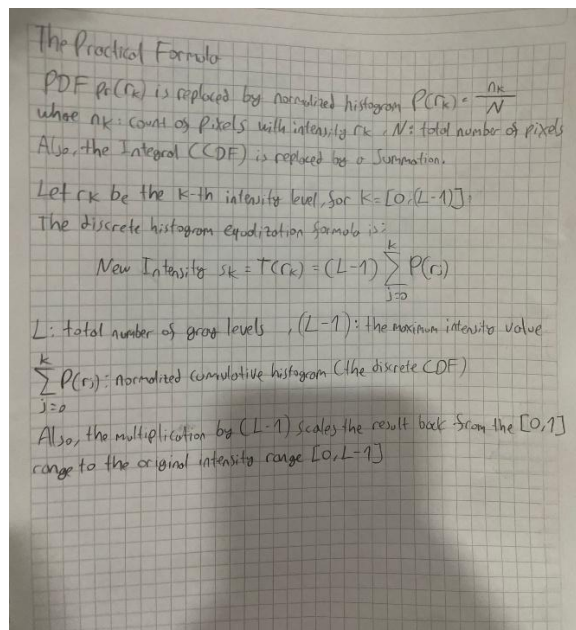 The Practical Formula
PDF Pr(rk) is replaced by normalized histogram P(rk) = nk/N
where nk: count of pixels with intensity rk, N: total number of pixels
Also, the Integral (CDF) is replaced by a Summation.
Let rk be the k-th intensity level, for k=[0,(L-1)].
The discrete histogram equalization formula is:
New Intensity sk = T(rk) = (L-1) ∑_{j=0}^{k} P(rj)
L: total number of gray levels , (L-1): the maximum intensity value
∑_{j=0}^{k} P(rj): normalized cumulative histogram (the discrete CDF)
Also, the multiplication by (L-1) scales the result back from the [0,1]
range to the original intensity range [0,L-1]